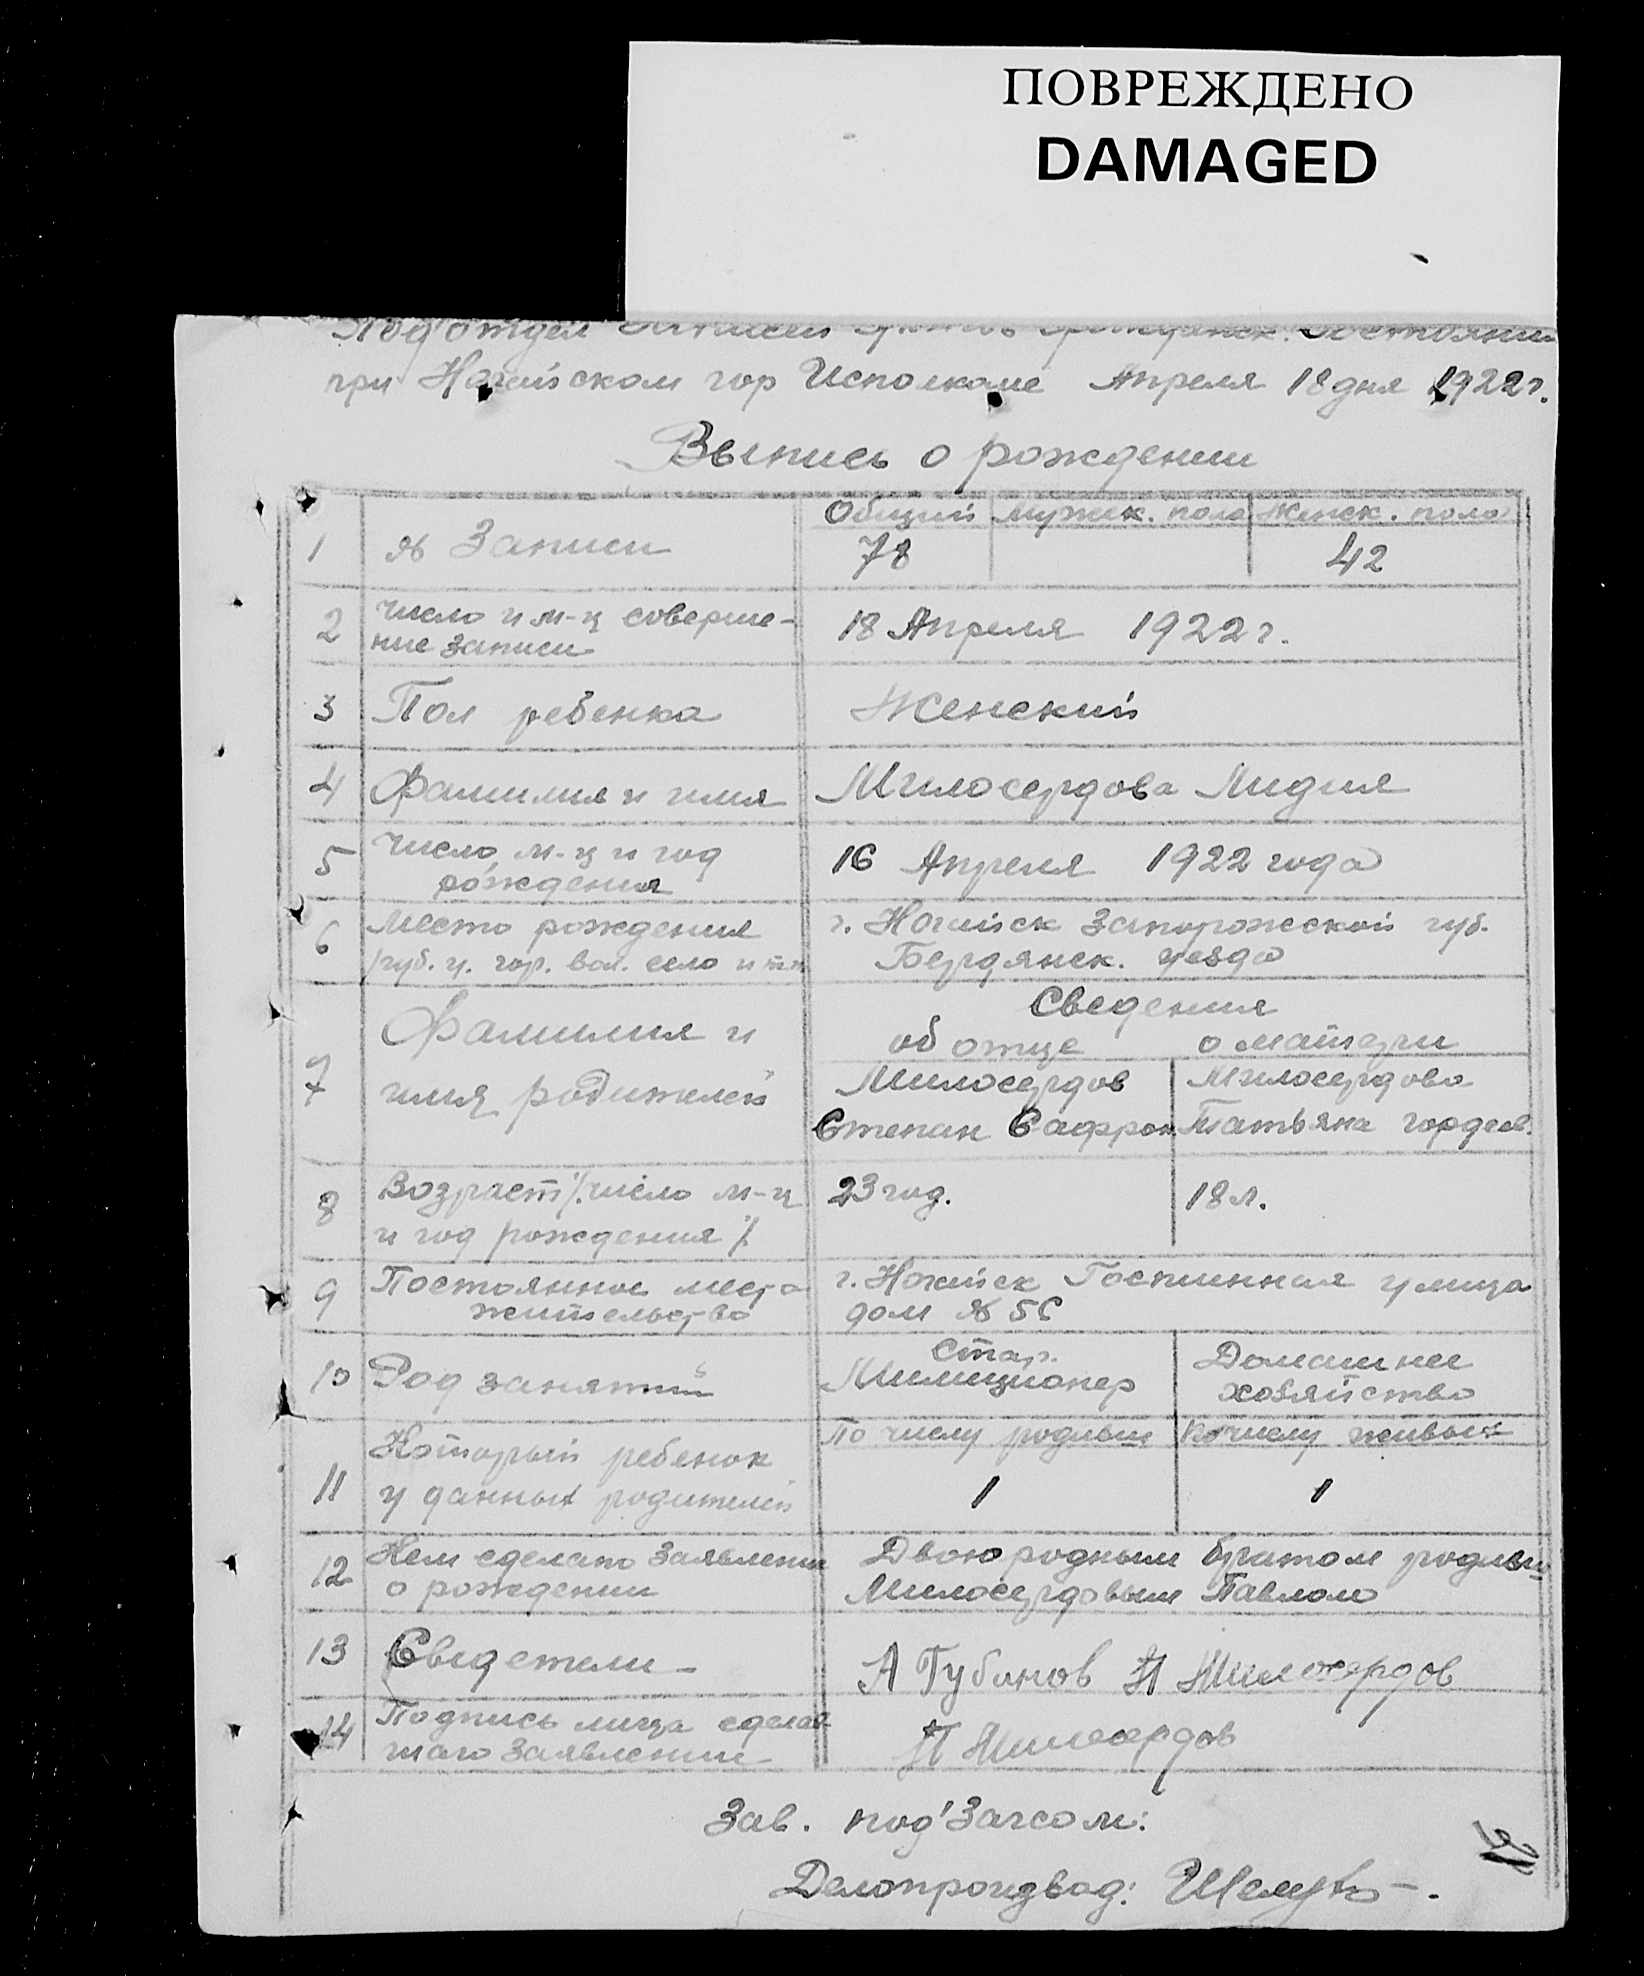 ПОВРЕЖДЕНО
DAMAGED
Под'отдел Записей Актов Гражданск. Состояни
при Ногайском гор Исполкоме Апреля 18 дня 1922 г.
Выпись о рождении
1 № Записи Общий 78 Мужск. пола Женск. пола 42
2 Число и м-ц соверше-
ние записи 18 Апреля 1922 г.
3 Пол ребенка Женский
4 Фамилия и имя Милосердова Лидия
5 Число, м-ц и год
рождения 16 Апреля 1922 года
6 Место рождения г. Ногайск Запорожской губ.
/губ. у. гор. вол. село и т.п. Бердянск. уезда
Сведения
7 Фамилия и об отце о матери
имя родителей Милосердов Милосердова
Степан Сафрон Татьяна Гордеев.
8 Возраст /.число м-ц 23 год. 18 л.
и год рождения /.
9 Постоянное место г. Ногайск Гостинная улица
жительство дом № 56
Стар.
10 Род занятий Милиционер Домашнее
хозяйство
По числу родивш По числу живых
11 Который ребенок
у данных родителей 1 1
12 Кем сделано заявление Двоюродным братом родивш
о рождении Милосердовым Павлом
13 Свидетели - А Губанов П Милосердов
14 Подпись лица сделав
шаго заявление П Милосердов
Зав. под'Загсом:
Делопроизвод: